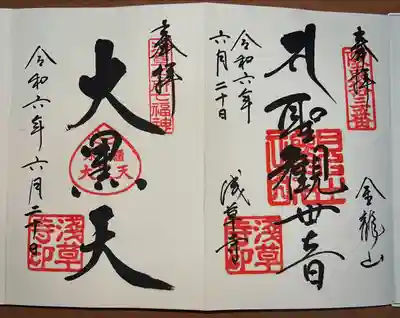 奉拝
聖観世音
令和六年
六月二十日
金龍山
浅草寺
浅草
寺印
奉拝
大黒天
令和六年六月二十日
浅草
寺印